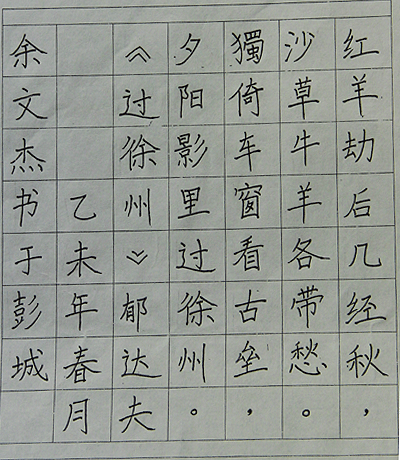 红羊劫后几经秋，
沙草牛羊各带愁。
獨倚车窗看古垒，
夕阳影里过徐州。
《过徐州》郁达夫
乙未年春月
余文杰书于彭城